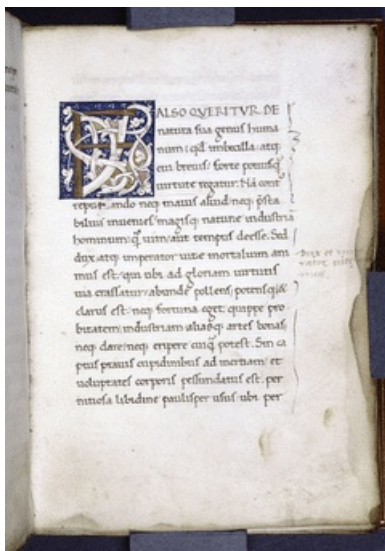 FALSO QVERITVR DE
natura sua genus huma
num: qd imbecilla atq;
eui breuis: forte potiusq̃
uirtute regatur. Nã cont
reputando neq; maius aliud neq; p̃sta
bilius inuenies: magisq; nature industria
hominum: q̃ uim aut tempus deesse. Sed
dux atq; imperator uite mortalium ani
mus est. qui ubi ad gloriam uirtutis
uia crassatur: abunde pollens: potensq; &
clarus est. neq; fortuna eget. quippe pro
bitatem: industriam aliasq; artes bonas
neq; dare: neq; eripere cuiq̃ potest. Sin ca
ptus prauis cupidinibus ad inertiam: et
voluptates corporis pessundatus est. per
nitiosa libidine paulisper usus ubi per